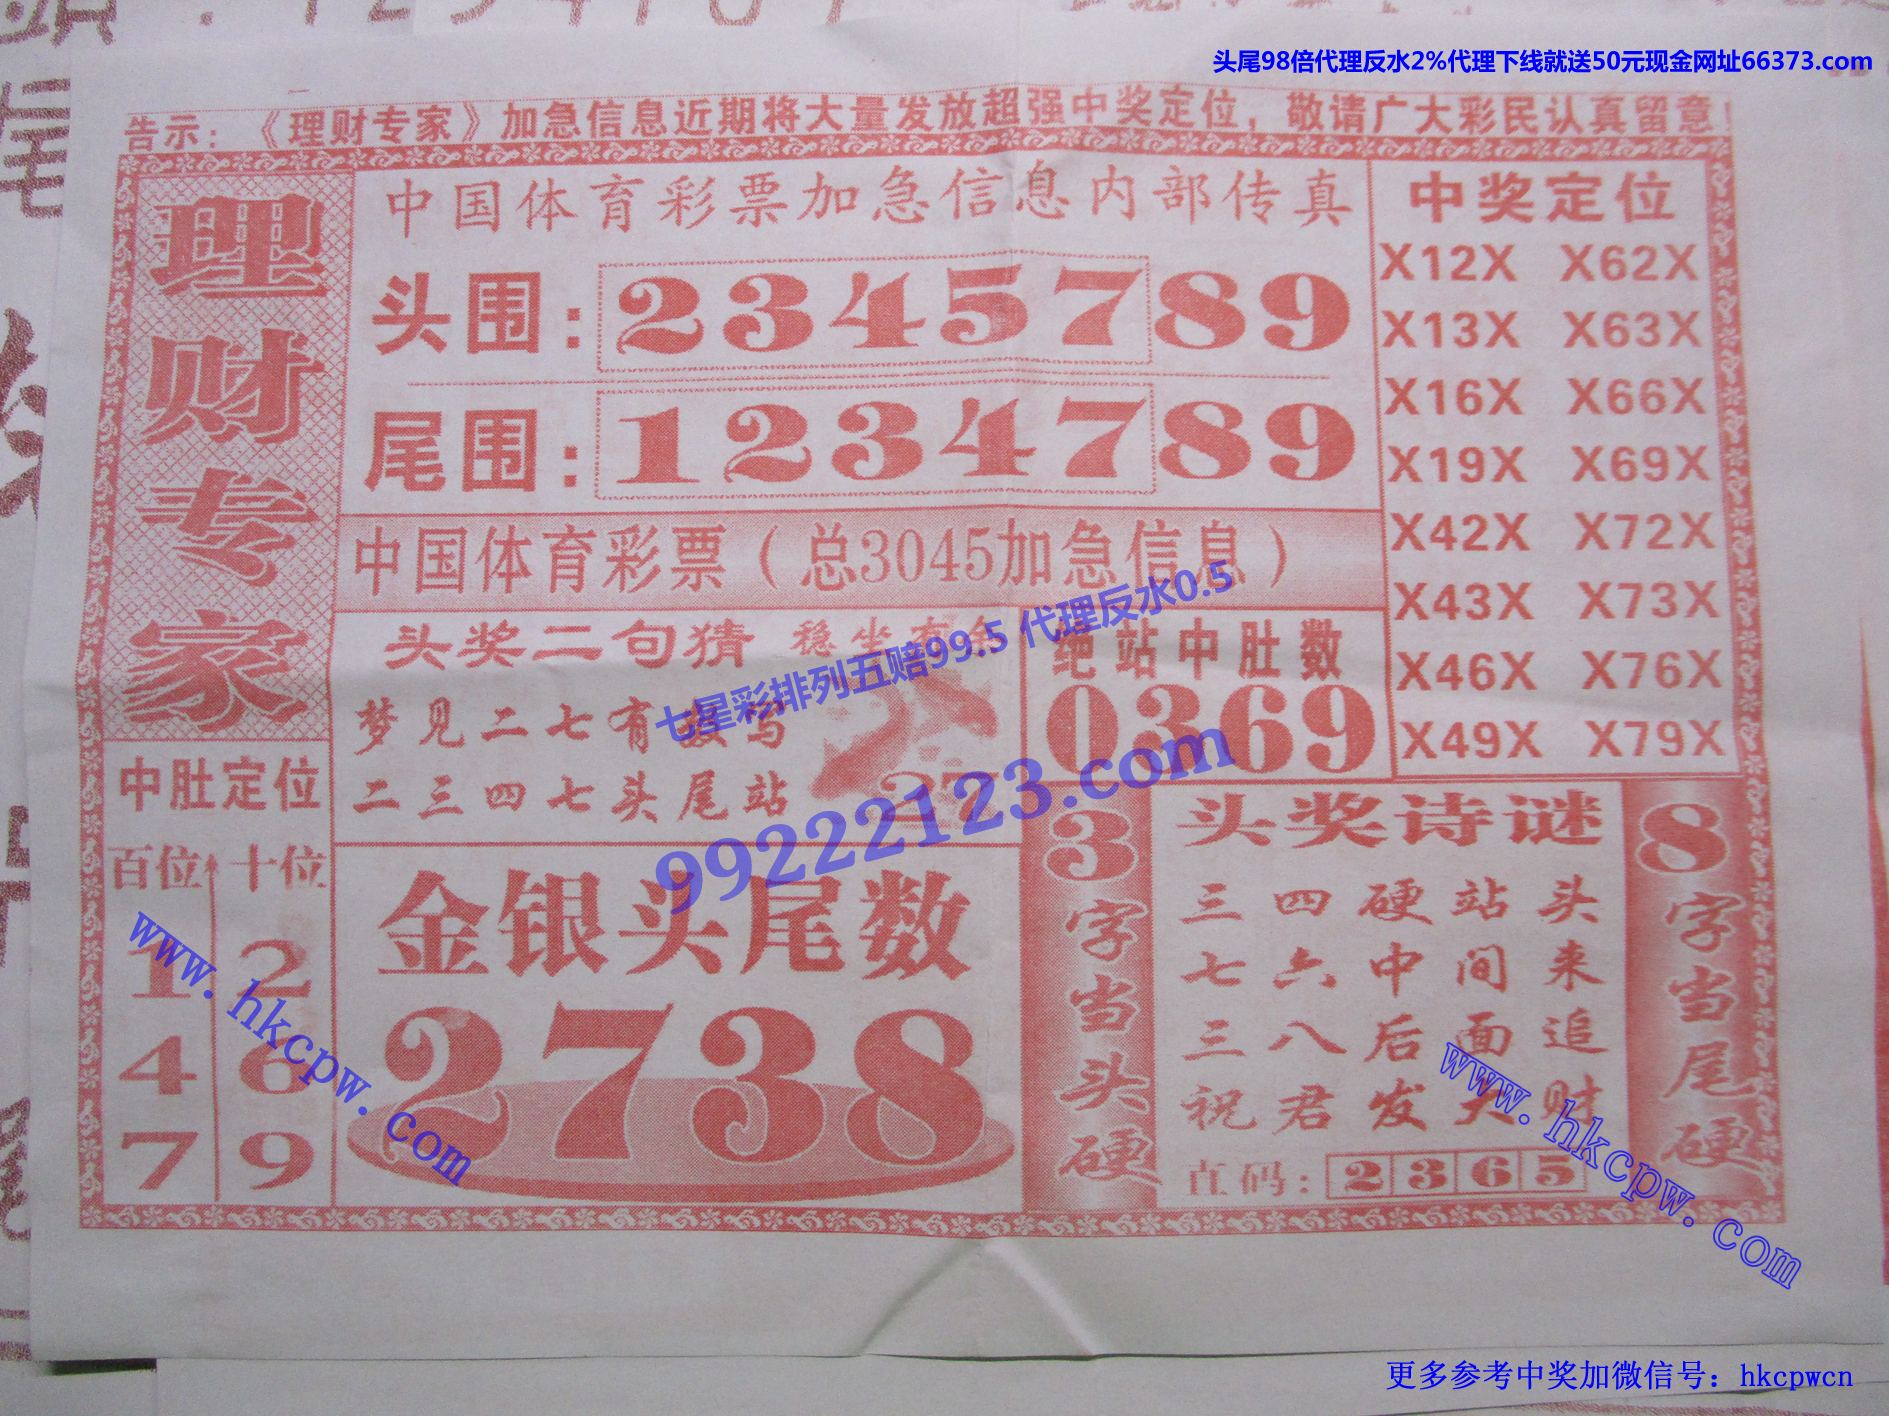 头尾98倍代理反水2%代理下线就送50元现金网址66373.com
告示：《理财专家》加急信息近期将大量发放超强中奖定位，敬请广大彩民认真留意！
理财专家
中国体育彩票加急信息内部传真
头围：2345789
尾围：1234789
中国体育彩票（总3045加急信息）
中奖定位
X12X X62X
X13X X63X
X16X X66X
X19X X69X
X42X X72X
X43X X73X
X46X X76X
X49X X79X
头奖二句猜 稳坐
梦见二七有
二三四七头尾站
27
绝站中肚数
0369
七星彩排列五赔99.5 代理反水0.5
99222123.com
中肚定位
百位 十位
1 2
4 6
7 9
金银头尾数
2738
3字当头硬
头奖诗谜
三四硬站头
七六中间来
三八后面追
祝君发大财
直码：2365
8字当尾硬
www.hkcpw.com
www.hkcpw.com
更多参考中奖加微信号：hkcpwcn